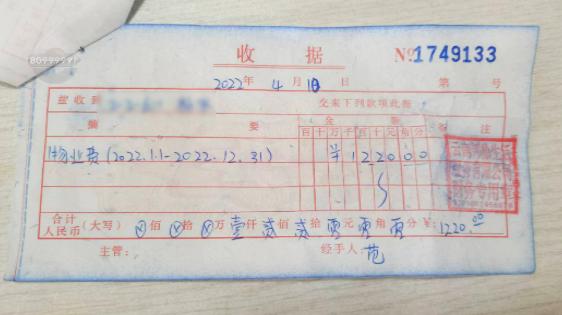 收据 №1749133
2022年 4月 10日 第 号
兹收到 交来下列款项此据
摘要 金 备注
百十万千百十元角分
物业费(2022.1.1-2022.12.31) ¥122000
财务专用章
合计人民币(大写) ⊗佰⊗拾⊗万壹仟贰佰贰拾零元零角零分 1220.00
主管: 经手人 范